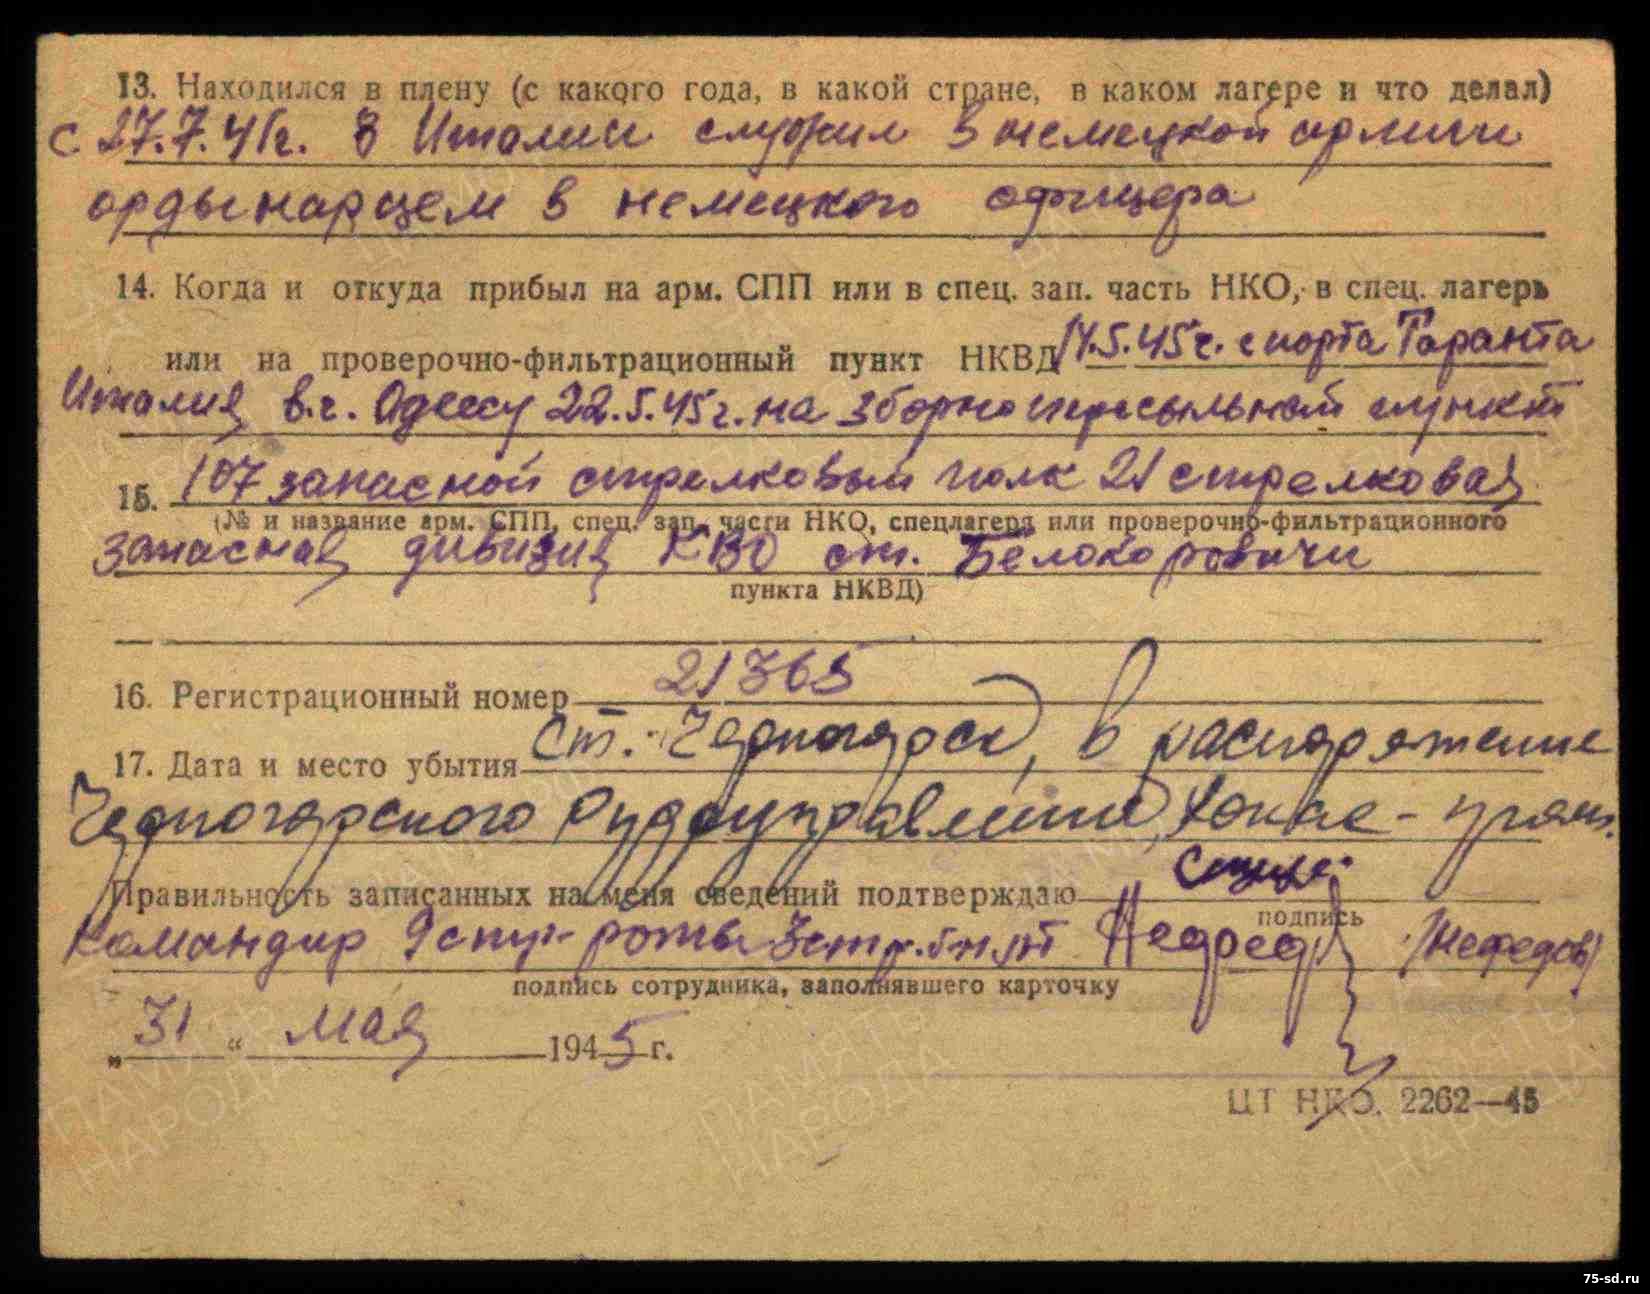 13. Находился в плену (с какого года, в какой стране, в каком лагере и что делал)
с 27.7.41г. в Италии служил в немецкой армии
ордынарцем в немецкого офицера
14. Когда и откуда прибыл на арм. СПП или в спец. зап. часть НКО, в спец. лагерь
или на проверочно-фильтрационный пункт НКВД 17.5.45г. с порта Таранта
Италия в.г. Одессу 22.5.45г. на зборно пересыльный пункт
15. 107 запасной стрелковый полк 21 стрелковая
(№ и название арм. СПП, спец. зап. части НКО, спецлагеря или проверочно-фильтрационного
запасная дивизия КВО ст. Белокоровичи
пункта НКВД)
16. Регистрационный номер 21365
17. Дата и место убытия ст. Черногорск, в распоряжение
Черногорского Рудоуправления,
Правильность записанных на меня сведений подтверждаю
подпись
Командир 9 роты 3 стр. б-н (Нефедов)
подпись сотрудника, заполнявшего карточку
„31“ мая 1945 г.
ЦТ НКО. 2262—45
ПАМЯТЬ НАРОДА
75-sd.ru